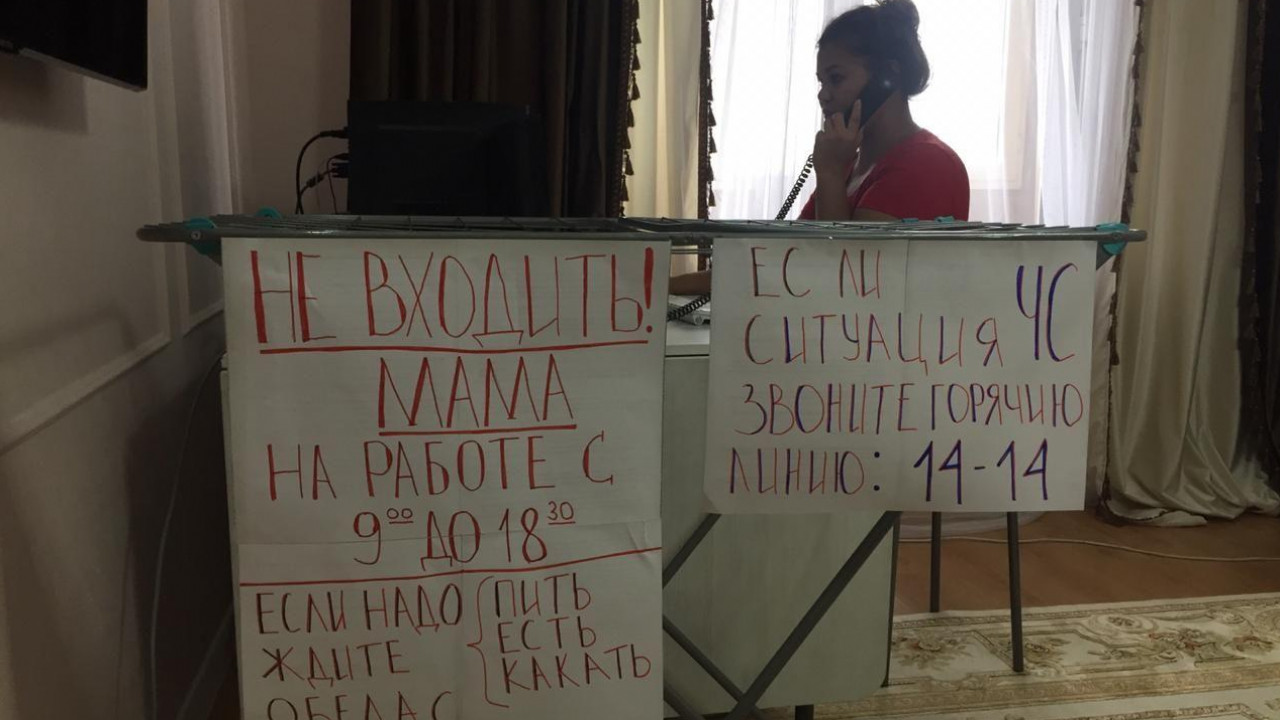 НЕ ВХОДИТЬ!
МАМА
НА РАБОТЕ С
9⁰⁰ ДО 18³⁰
ЕСЛИ НАДО
ЖДИТЕ
ОБЕДА С
ПИТЬ
ЕСТЬ
КАКАТЬ
ЕСЛИ
СИТУАЦИЯ ЧС
ЗВОНИТЕ ГОРЯЧИЮ
ЛИНИЮ: 14-14